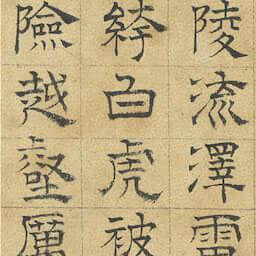 陵流澤
絝白虎被
險越壑厲